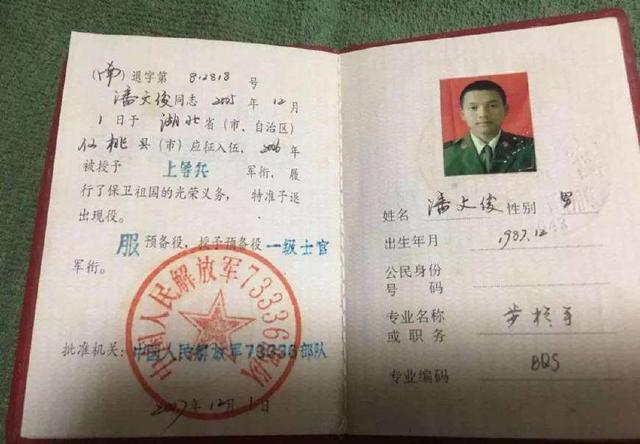 (南)退字第 812818 号
潘文俊同志 2005 年 12 月
1 日于 湖北 省(市、自治区)
仙桃 县(市)应征入伍，2006 年
被授予 上等兵 军衔，履
行了保卫祖国的光荣义务，特准予退
出现役。
服 预备役，授予预备役 一级士官
军衔。
中国人民解放军73336部队
批准机关：中国人民解放军73336部队
2007年 12月 1日
姓名 潘文俊 性别 男
出生年月 1987.12
公民身份
号 码
专业名称
或职务
步枪手
专业编码